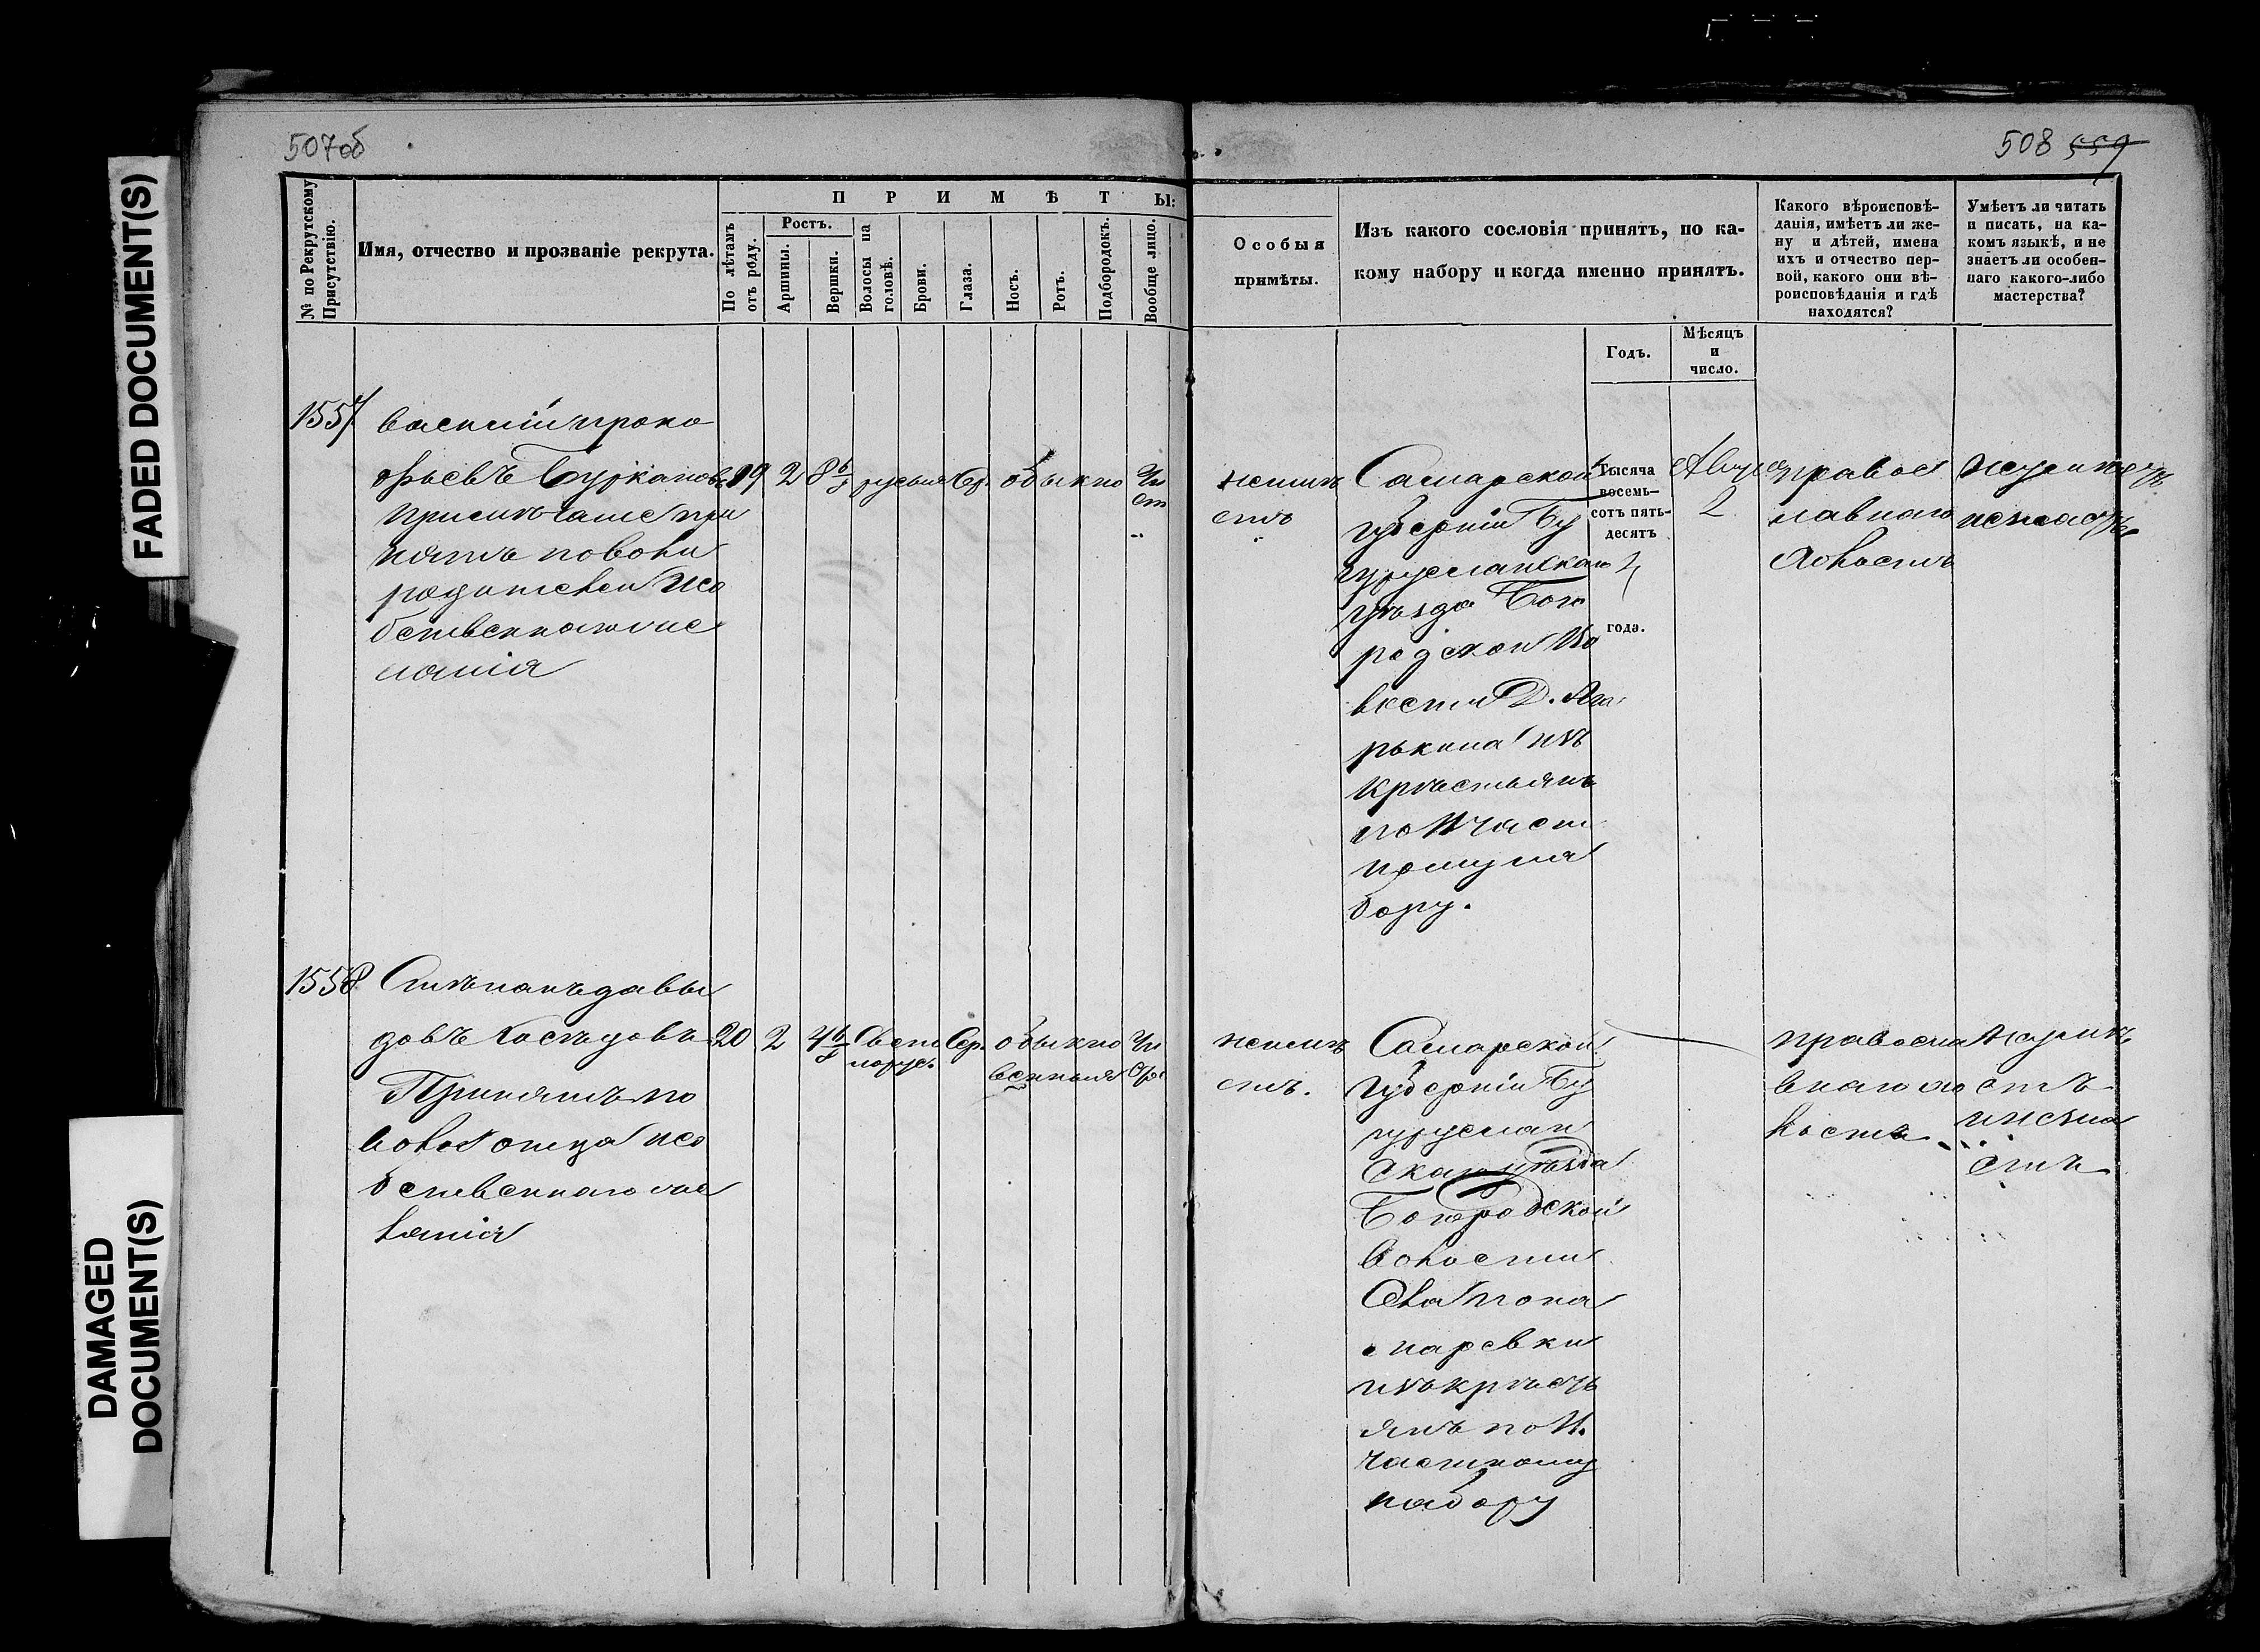 FADED DOCUMENT(S)
DAMAGED
DOCUMENT(S)
507об
508 559
№ по Рекрутскому
Присутствію.
Имя, отчество и прозваніе рекрута.
ПРИМѢТЫ:
По лѣтамъ
отъ роду.
Ростъ.
Аршины.
Вершки.
Волосы на
головѣ.
Брови.
Глаза.
Носъ.
Ротъ.
Подбородокъ.
Вообще лицо.
Особыя
примѣты.
Изъ какого сословія принятъ, по ка-
кому набору и когда именно принятъ.
Годъ.
Мѣсяцъ
и
число.
Какого вѣроисповѣ-
данія, имѣетъ ли же-
ну и дѣтей, имена
ихъ и отчество пер-
вой, какого они вѣ-
роисповѣданія и гдѣ
находятся?
Умѣетъ ли читать
и писать, на ка-
комъ языкѣ, и не
знаетъ ли особен-
наго какого-либо
мастерства?
1557
Василій Проко
фьевъ
при
нятъ поволи
родителей исо
бственнаго же
ланія
19 2 8 6/8 русые Сер. обыкно Чи
ст
неимѣ
етъ
Самарской
губерніи Бу
гурусланскаго
уѣзда Бого
родской во
лости Д.
ркина изъ
крѣстьянъ
по
Ч част
ному на
бору.
Тысяча
восемь-
сотъ пять-
десятъ
4
года.
Авгус
2
правос
лавнаго
холостъ
1558
Стѣпанъ Давы
довъ
Принятъ по
воли отца исо
бственнаго же
ланія
20 2 4 6/8 Светл Сер. обыкно Чи
норус. венныя
неимѣ
етъ.
Самарской
губерніи Бу
гуруслан
скаго уѣзда
Богородской
волости
изъ крѣсть
янъ по Ч.
частному
набору
правосла
внаго хо
лостъ